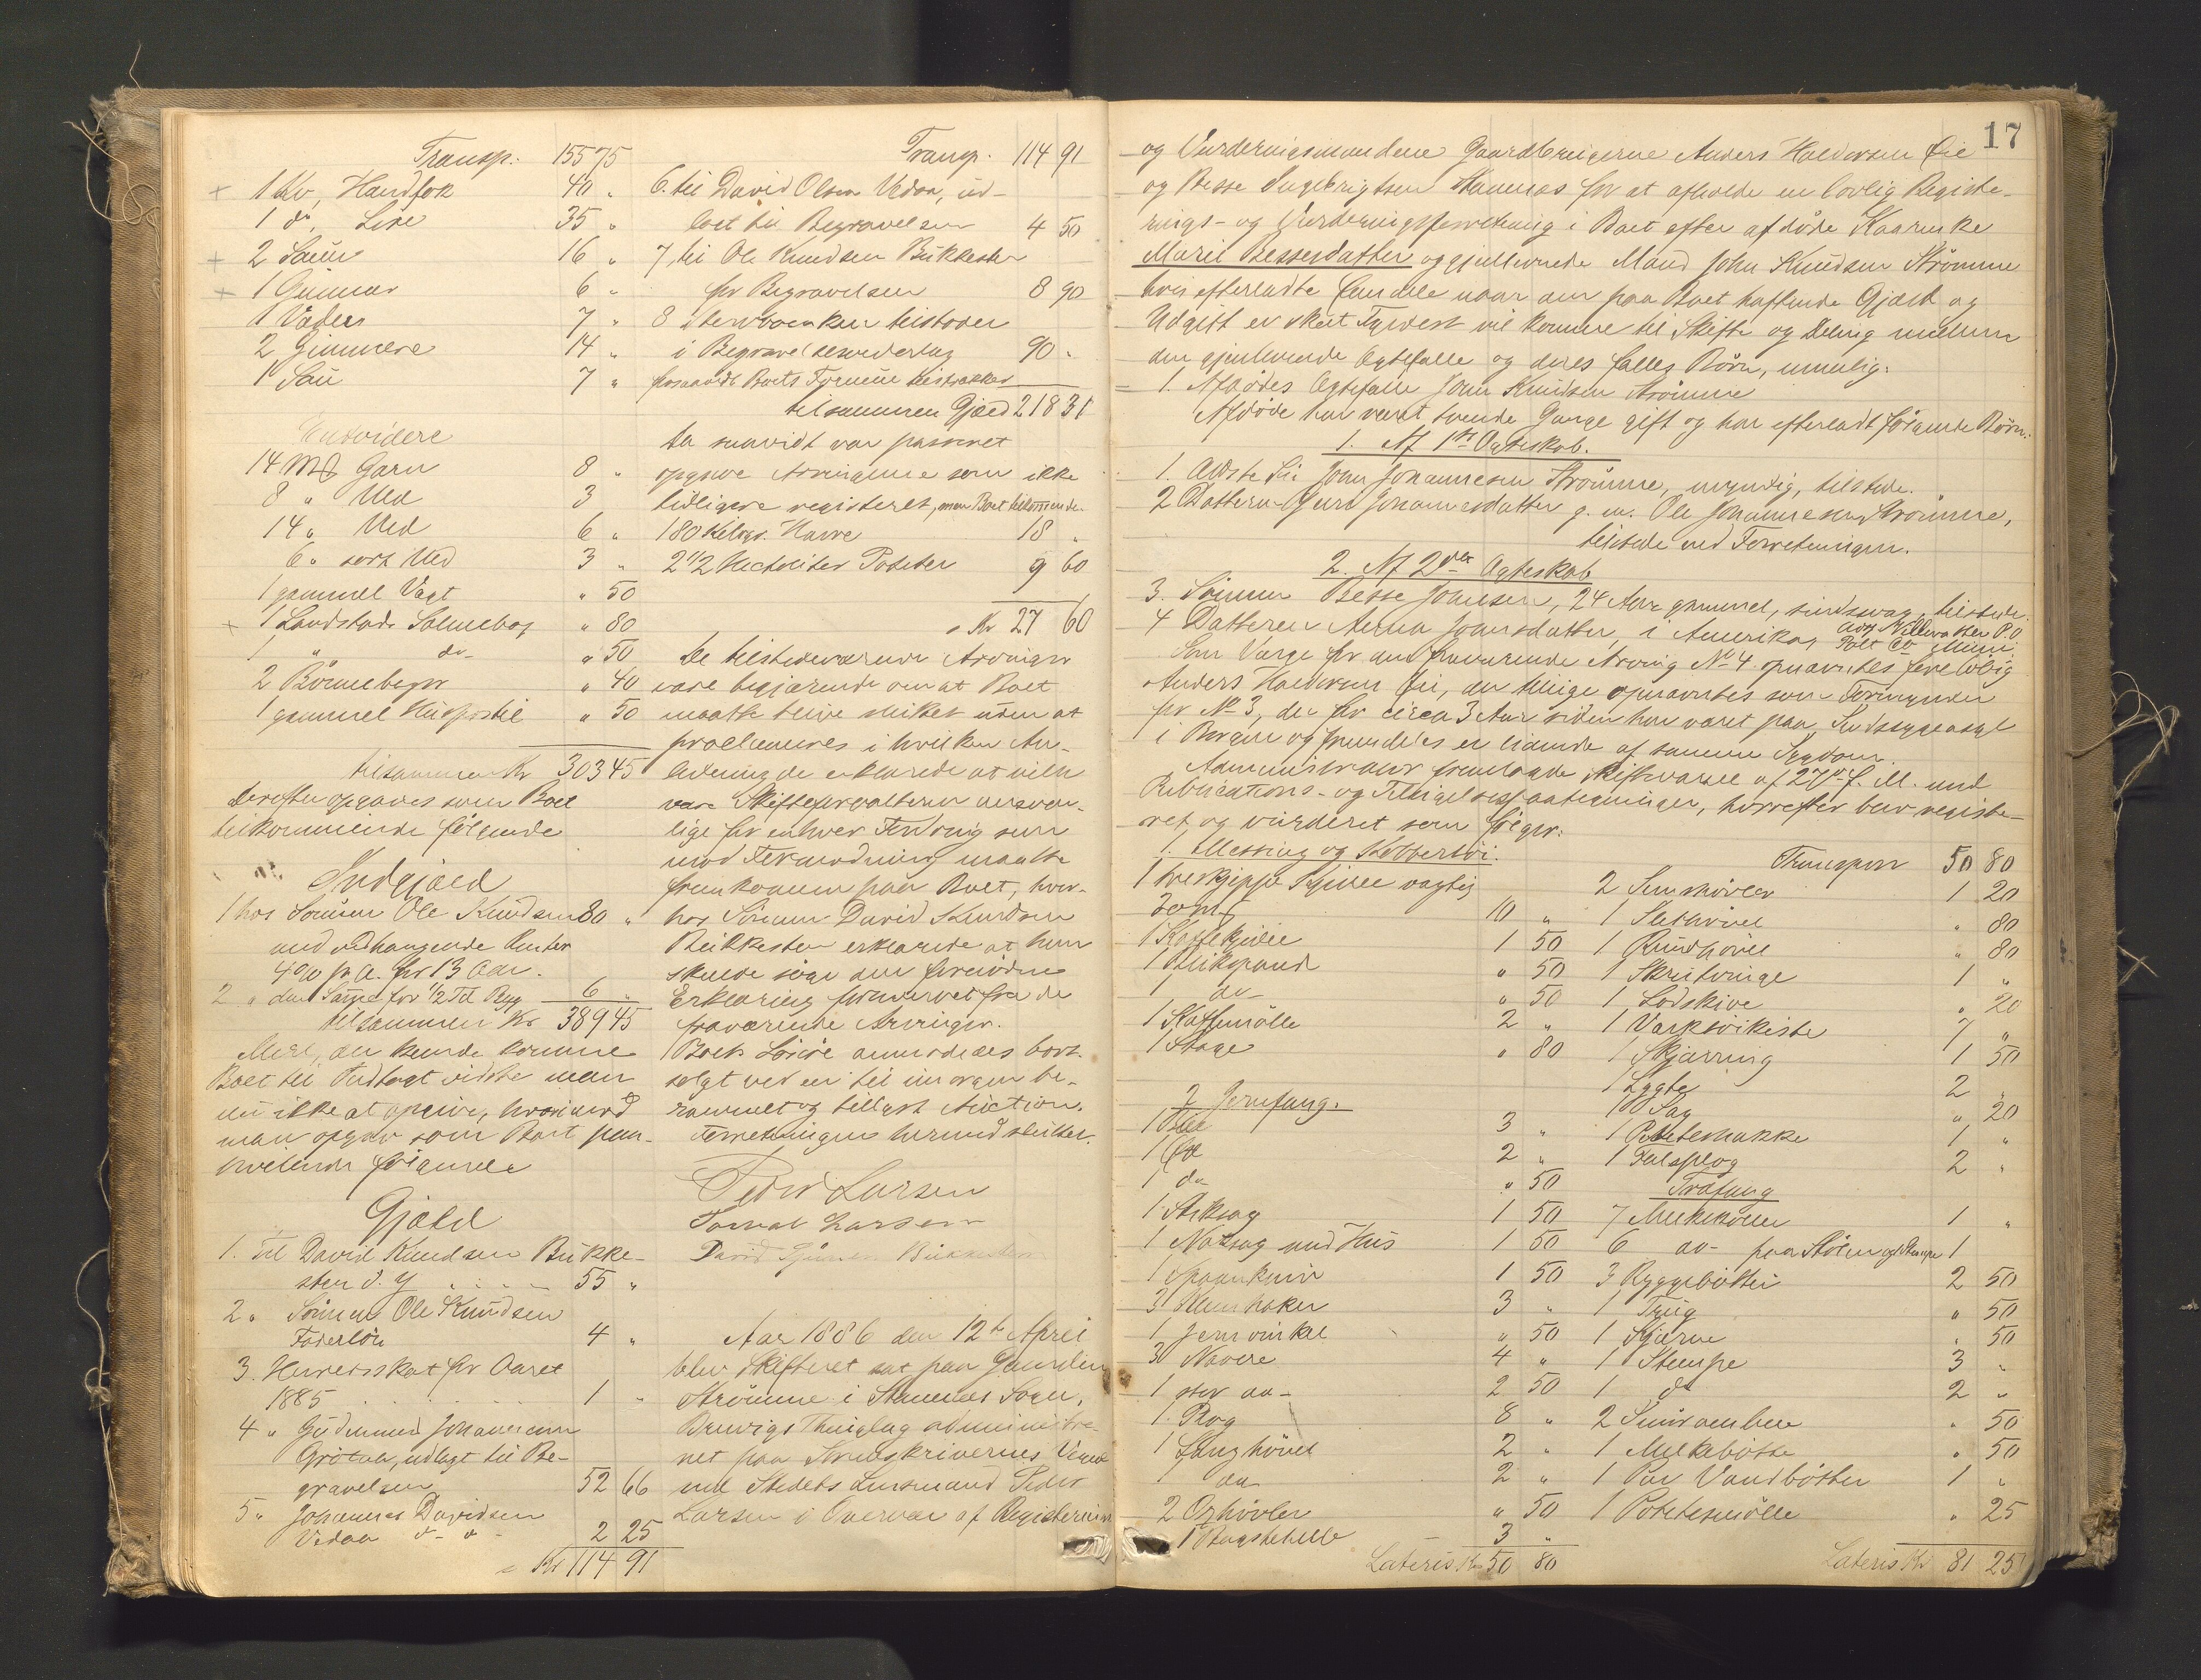 Transp. 155 75
+ 1 Ko, Handfok 40 "
1 do, Live 35 "
+ 2 Sauer 16 "
+ 1 Gimmer 6 "
1 Væder 7 "
2 Gimmere 14 "
1 Sau 7 "
Endvidere
14 Mk Garn 8 "
8 " Uld 3
14 " Uld 6 "
6 " sort Uld 3 "
1 gammel Vægt " 50
+ 1 Landstads Salmebog " 80
1 " do- " 50
2 Bönnebøger " 40
1 gammel Huspostil " 50
tilsammen Kr 303 45
Derefter opgaves som Boet
tilkommende følgende
Indgjæld
1 hos Sönnen Ole Knudsen 80 "
med vedhængende Renter
4 % p. a. for 13 Aar.
2 " den Samme for 1/2 Td Byg 6 "
tilsammen Kr 389 45
Mere, der kunde komme
Boet til Indtægt vidste man
nu ikke at opgive, hvorimod
man opgav som Boet paa-
hvilende følgende
Gjæld
1. Til David Knudsen Bukke-
sten d. y. 55 "
2 " Sönnen Ole Knudsen
Foderlön 4 "
3. Herredsskat for Aaret
1885 1 "
4 " Gudmund Johannesen
Grötaa, udlagt til Be-
gravelsen 52 66
5 " Johannes Davidsen
Vedaa do- do- 2 25
Kr 114 91
Transp. 114 91
6. til David Olsen Vedaa, ud-
lagt til Begravelsen 4 50
7, til Ole Knudsen Bukkesten
for Begravelsen 8 90
8 Stervboenken tilstodes
i Begravelsesvederlag 90 "
forsaavidt Boets Formue tilstrækker
tilsammen Gjæld 218 31
Da saavidt var passeret
opgave Arvingerne som ikke
tidligere registeret, men Boet tilkommende.
180 Kilogr. Havre 18 "
2 1/2 Hectoliter Poteter 9 60
Kr 27 60
De tilstedeværende Arvinger
vare begjærende om at Boet
maatte blive sluttet uden at
proclameres i hvilken An-
ledning de erklærede at ville
være Skifteforvalteren ansvar-
lige for enhver Fordring som
mod Formodning maatte
fremkomme paa Boet, hvor-
hos Sönnen David Knudsen
Bukkesten erklærede at han
skulde søge den fornödne
Erklæring fremskaffet fra de
fraværende Arvinger.
Boets Lösöre anmodedes bort-
solgt ved en til imorgen be-
rammet og tillyst Auction.
Forretningen hermed sluttet.
Peder Larsen
Tomas Larsen
David
Aar 1886 den 12te April
blev Skifteret sat paa Gaarden
Strömme i Stamnes Sogn,
Bruvigs Thinglag administre-
ret paa Sorenskriverens Vegne
ved Stedets Lensmand Peder
Larsen i Overvær af Registerings
17
og Vurderingsmændene Gaardbrugerne Anders Haldorsen Öie
og Besse Ingebrigtsen Stamnes for at afholde en lovlig Registe-
rings- og Vurderingsforretning i Boet efter afdöde Kaarenke
Marit Bessesdatter og gjenlevende Mand John Knudsen Strömme
hvis efterladte Eiendele naar den paa Boet hæftende Gjæld og
Udgift er skeet Fyldest vil komme til Skifte og Deling mellem
den gjenlevende Ægtefælle og deres fælles Börn, nemlig:
1. Afdödes Ægtefælle John Knudsen Strömme
Afdöde har været tvende Gange gift og har efterladt fölgende Börn:
1. Af 1ste Ægteskab.
1. Ældste Sön John Johannesen Strömme, myndig, tilstede.
2 Datteren Guri Johannesdatter g. m. Ole Johannesen Strömme,
tilstede ved Forretningen.
2. Af 2det Ægteskab
3. Sönnen Besse Johnsen, 24 Aar gammel, sindssvag, tilstede.
4 Datteren Anna Johnsdatter, i Amerika, P.O.
Polk Co Minn.
Som Værge for den fraværende Arving No 4 opnævntes foreløbig
Anders Haldorsen Öie, der tillige opnævntes som Formynder
for No 3, der for circa 3 Aar siden har været paa Sindssygeasyl
i Bergen og fremdeles er lidende af samme Sygdom.
Administrator fremlagde Skiftevarsel af 27de f. M. med
Publications- og Tilsigelsespaategninger, hvorefter blev registe-
ret og vurderet som følger:
1. Messing og Kobbertöi.
1 treskjeppe Kjedel vægtig
30 Mk 10 "
1 Kaffekjedel 1 50
1 Blikspand " 50
1 do- " 50
1 Kaffemölle 2 "
1 Stage " 80
2 Jernfang.
1 Bile 3 "
1 Öxe 2 "
1 do " 50
1 Stiksag 1 50
1 Natsag med Hus 1 50
1 Spaankniv 1 50
3 Hakker 3 "
1 Jernvinkel " 50
3 Navere 4 "
1 stor do- 2 50
1 Plog 8 "
1 Langhövel 2 "
1 do 2 "
2 Ozhövler " 50
1 Bagstehelle 3 "
Lateris Kr 50 80
Transport 50 80
2 Simshövler 1 20
1 Slethövel " 80
1 Rundhövel " 80
1 Skrutvinge 1 "
1 Lodskive " 20
1 Værktöikiste 7 "
1 Skjærring 1 50
1 Lygte 2 "
1 Sag " 20
1 Poteteshakke 1 "
1 Falsplog 2 "
Træfang
7 Melkekoller 1 "
6 do- paa Stölen og Stampe 1
3 Ryggebötter 2 50
1 Trug " 50
1 Kjerne " 50
1 Stampe 3 "
1 do 2 "
2 Smöræmbere " 50
1 Melkebötte " 50
1 Par Vandbötter 1 "
1 Potetesmölle " 25
Lateris Kr 81 25